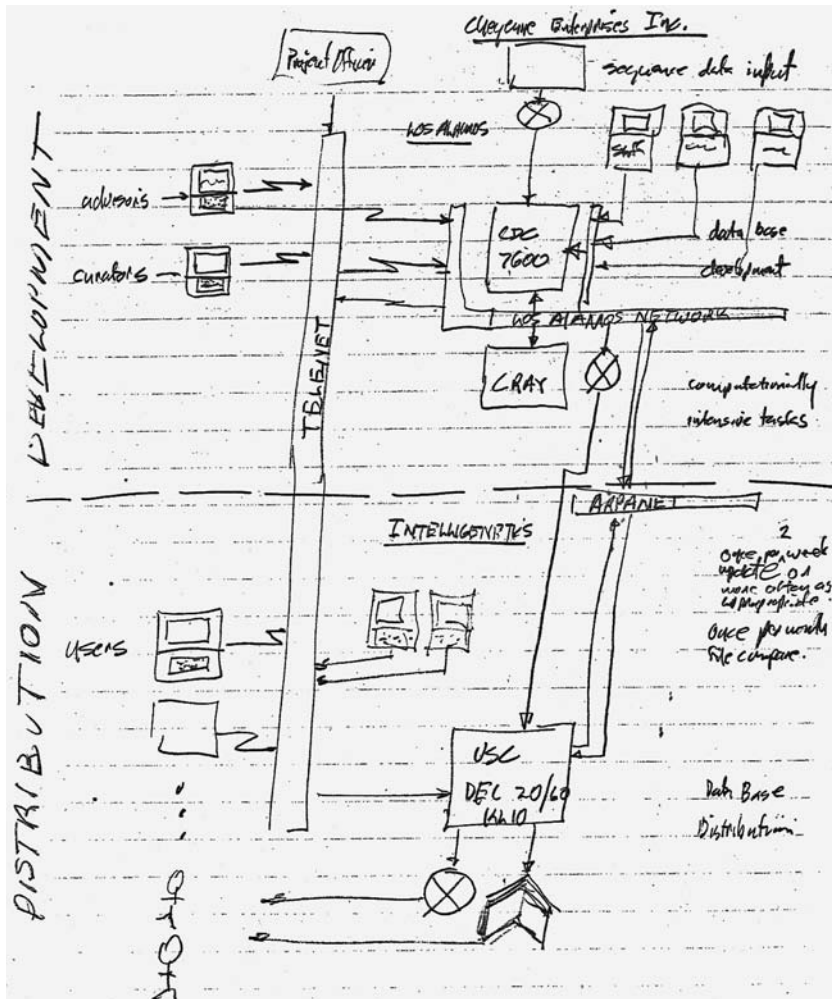 Cheyenne Enterprises Inc.
Project Officer
sequence data input
LOS ALAMOS
DEVELOPMENT
advisors
curators
Staff
CDC
7600
data base
development
LOS ALAMOS NETWORK
TELENET
CRAY
computationally
intensive tasks
ARPANET
INTELLIGENETICS
2
once per week
update or
more often as
appropriate.
once per month
file compare.
DISTRIBUTION
users
USC
DEC 20/60
KL10
Data Base
Distribution